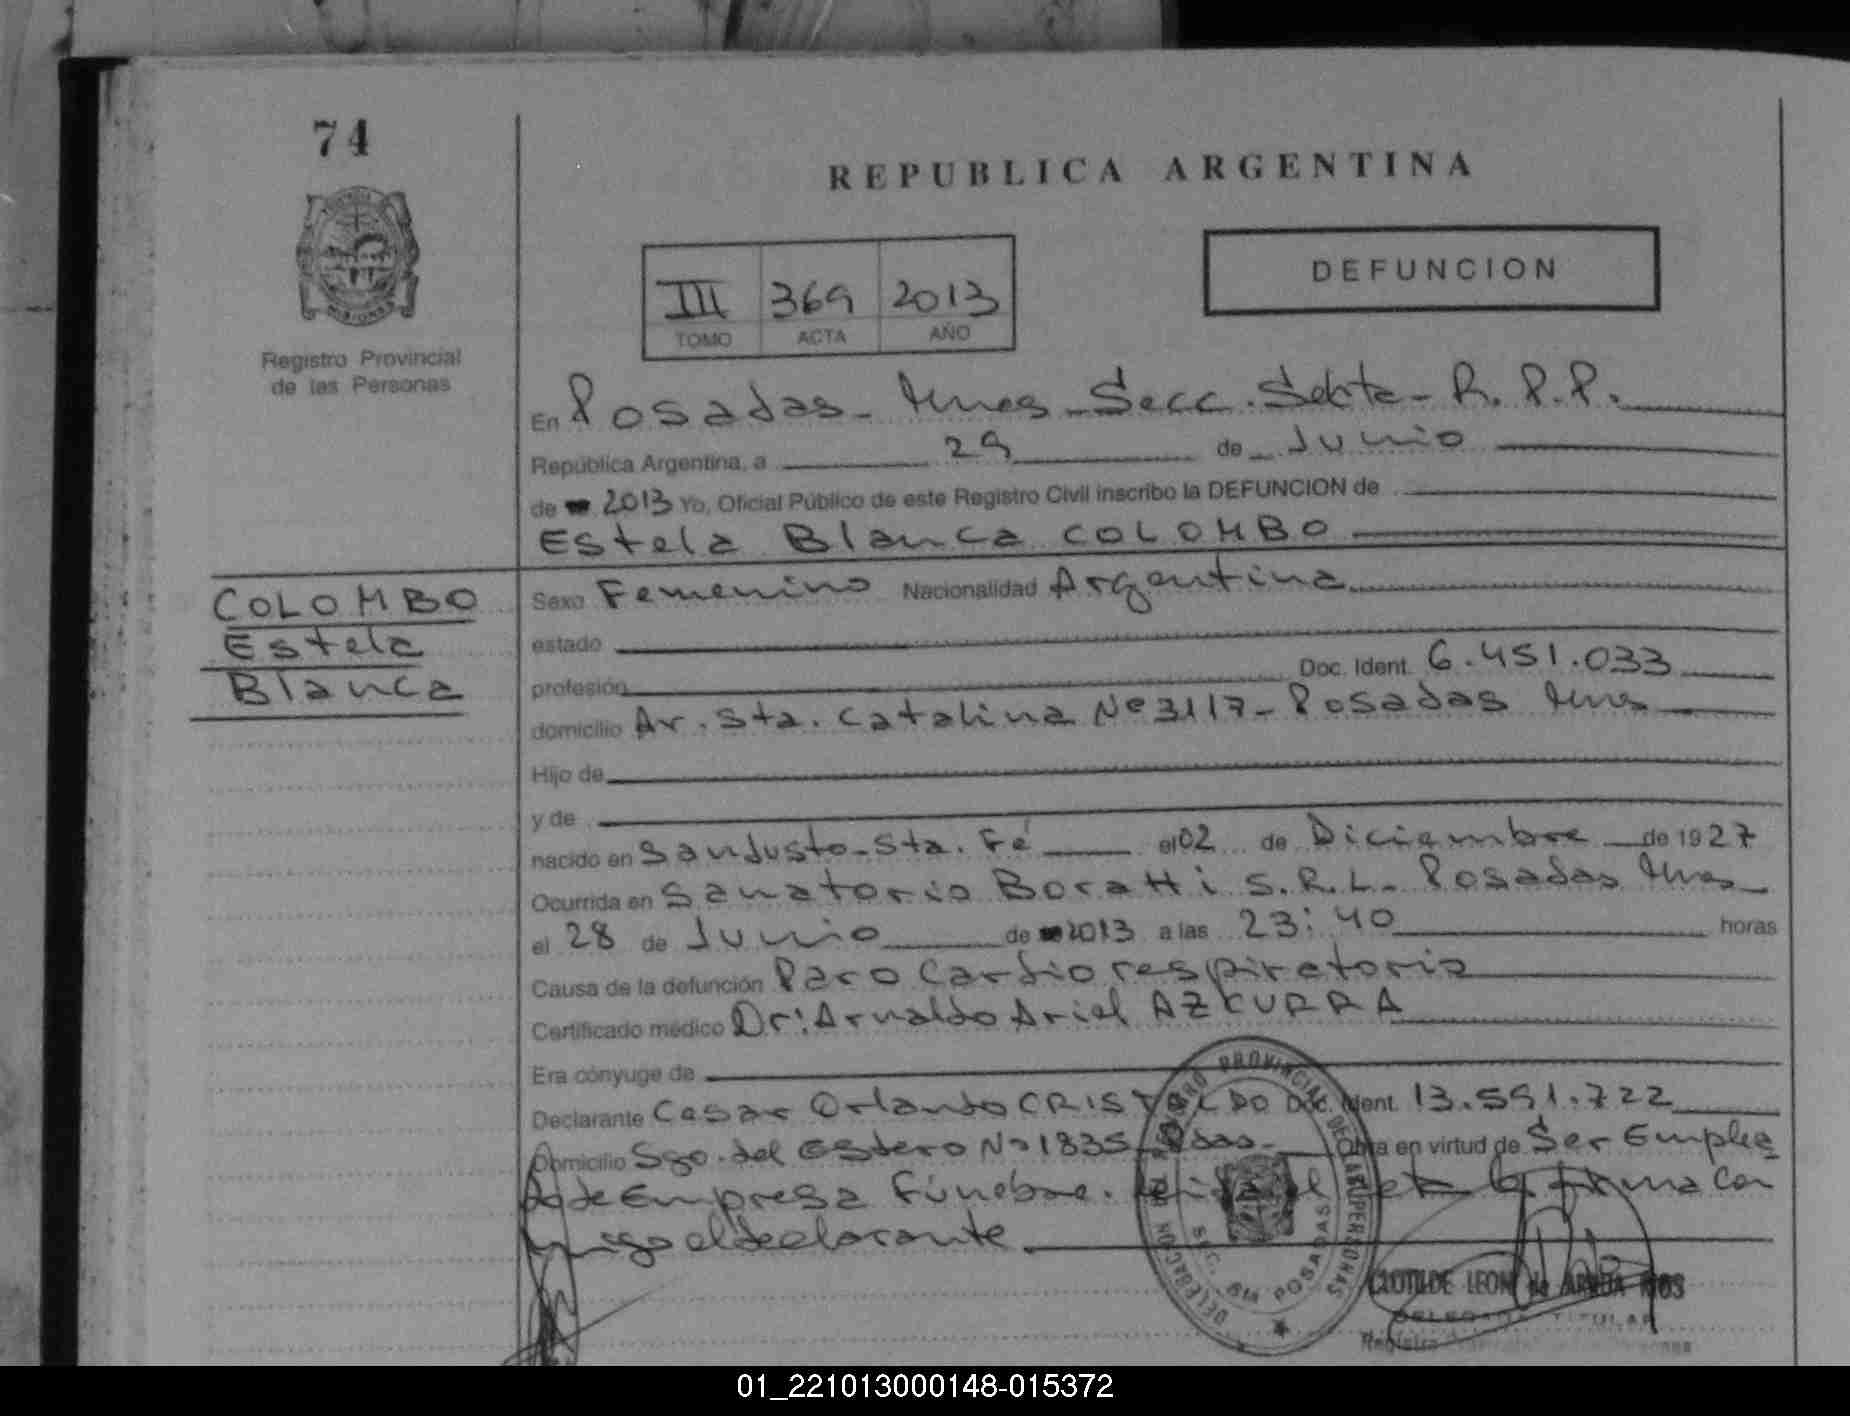 74
REPUBLICA ARGENTINA
DEFUNCION
III 369 2013
TOMO ACTA AÑO
Registro Provincial
de las Personas
En Posadas - Mnes - Secc. Sexta - R. P. P.
República Argentina, a 29 de Junio
de 2013 Yo, Oficial Público de este Registro Civil inscribo la DEFUNCION de
Estela Blanca COLOMBO
COLOMBO
Estela
Blanca
Sexo Femenino Nacionalidad Argentina
estado
profesión Doc. Ident. 6.451.033
domicilio Av. Sta. Catalina Nº 3117 - Posadas Mnes
Hijo de
y de
nacido en San Justo - Sta. Fé el 02 de Diciembre de 1927
Ocurrida en Sanatorio Boratti S.R.L. - Posadas Mnes
el 28 de Junio de 2013 a las 23:40 horas
Causa de la defunción Paro Cardiorespiratorio
Certificado médico Dr: Arnaldo Ariel AZCURRA
Era cónyuge de
Declarante Cesar Orlando CRISTALDO Doc. Ident. 13.591.722
Domicilio Sgo. del Estero Nº 1835 - Pdas - Obra en virtud de Ser Emplea
do de Empresa Fúnebre. Leída el acta la firma Con
migo el declarante
DELEGACION DEL REGISTRO PROVINCIAL DE LAS PERSONAS
SEC. 6ta POSADAS
CLOTILDE LEON de ARRUA RIOS
DELEGADA TITULAR
01_221013000148-015372